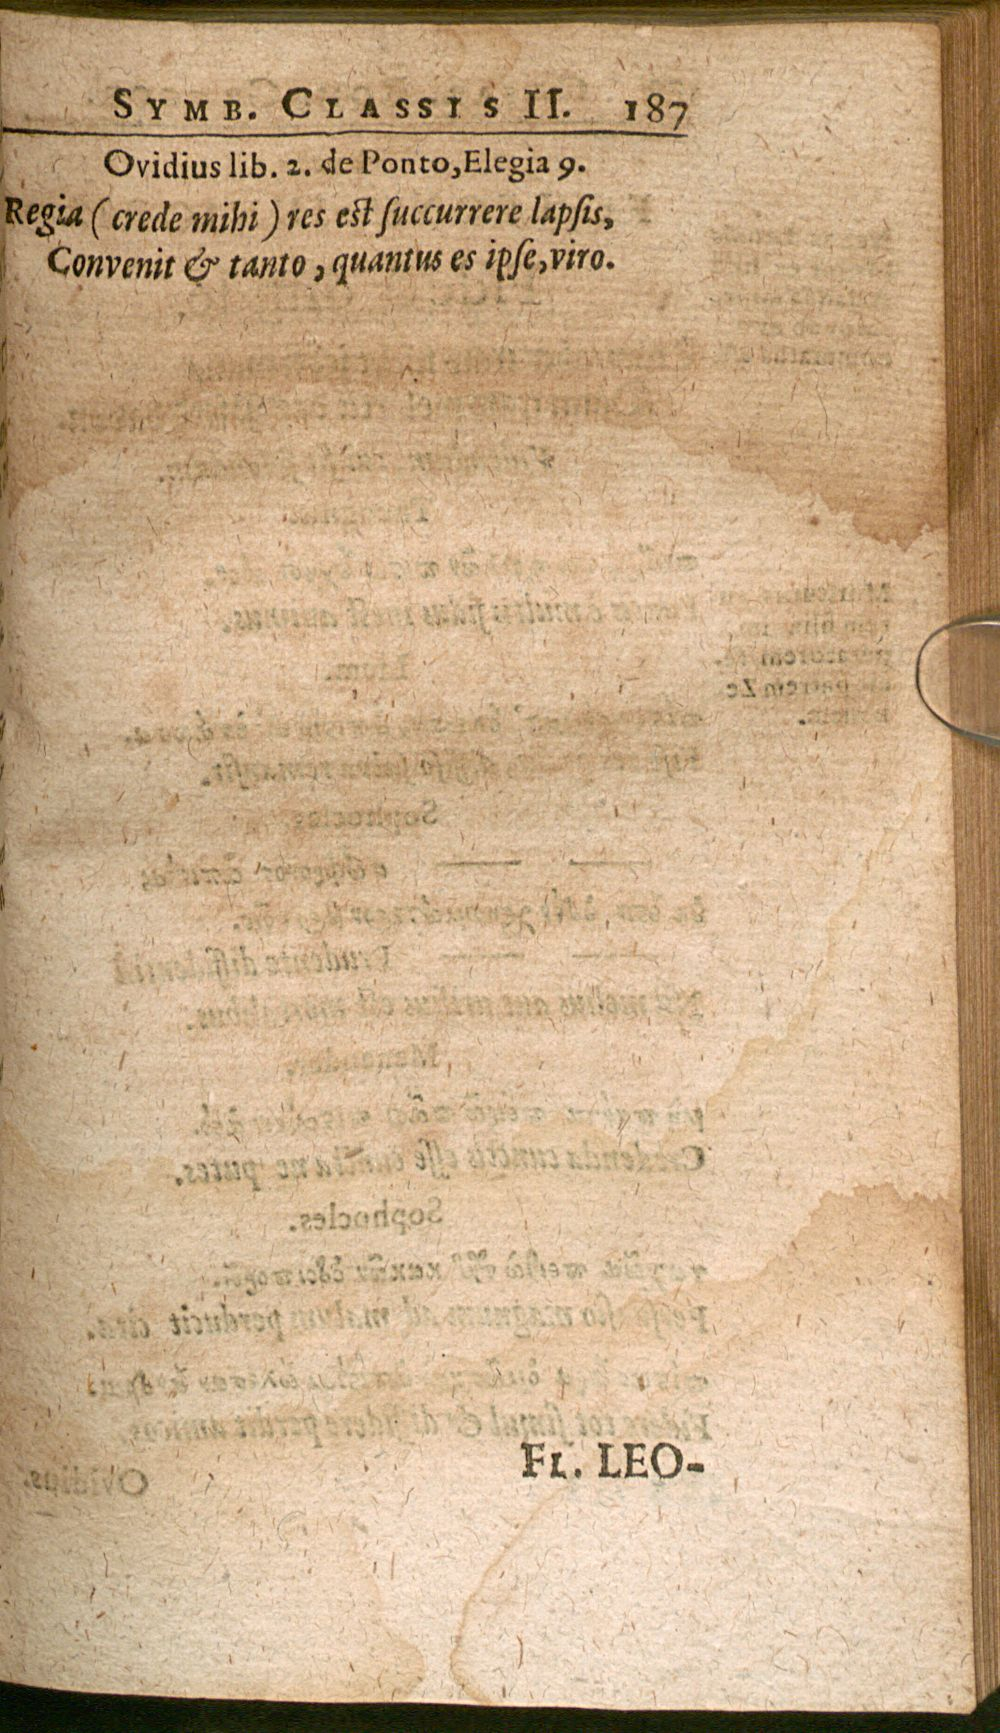 SYMB. CLASSIS II. 187
Ovidius lib. 2. de Ponto, Elegia 9.
Regia (crede mihi) res est ſuccurrere lapſis,
Convenit & tanto, quantus es ipſe, viro.
FL. LEO-